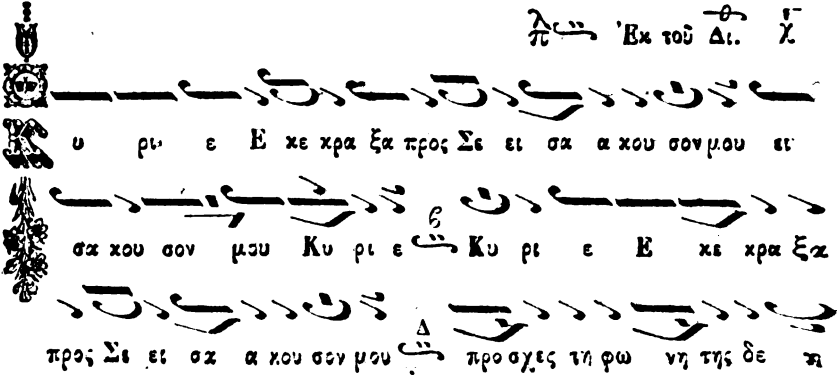 λ π Ἐκ τοῦ Δι. χ
υ ρι ε Ε κε κρα ξα προς Σε ει σα α κου σον μου ει
σα κου σον μου Κυ ρι ε β Κυ ρι ε Ε κε κρα ξα
προς Σε ει σα α κου σον μου Δ προ σχες τη φω νη της δε η